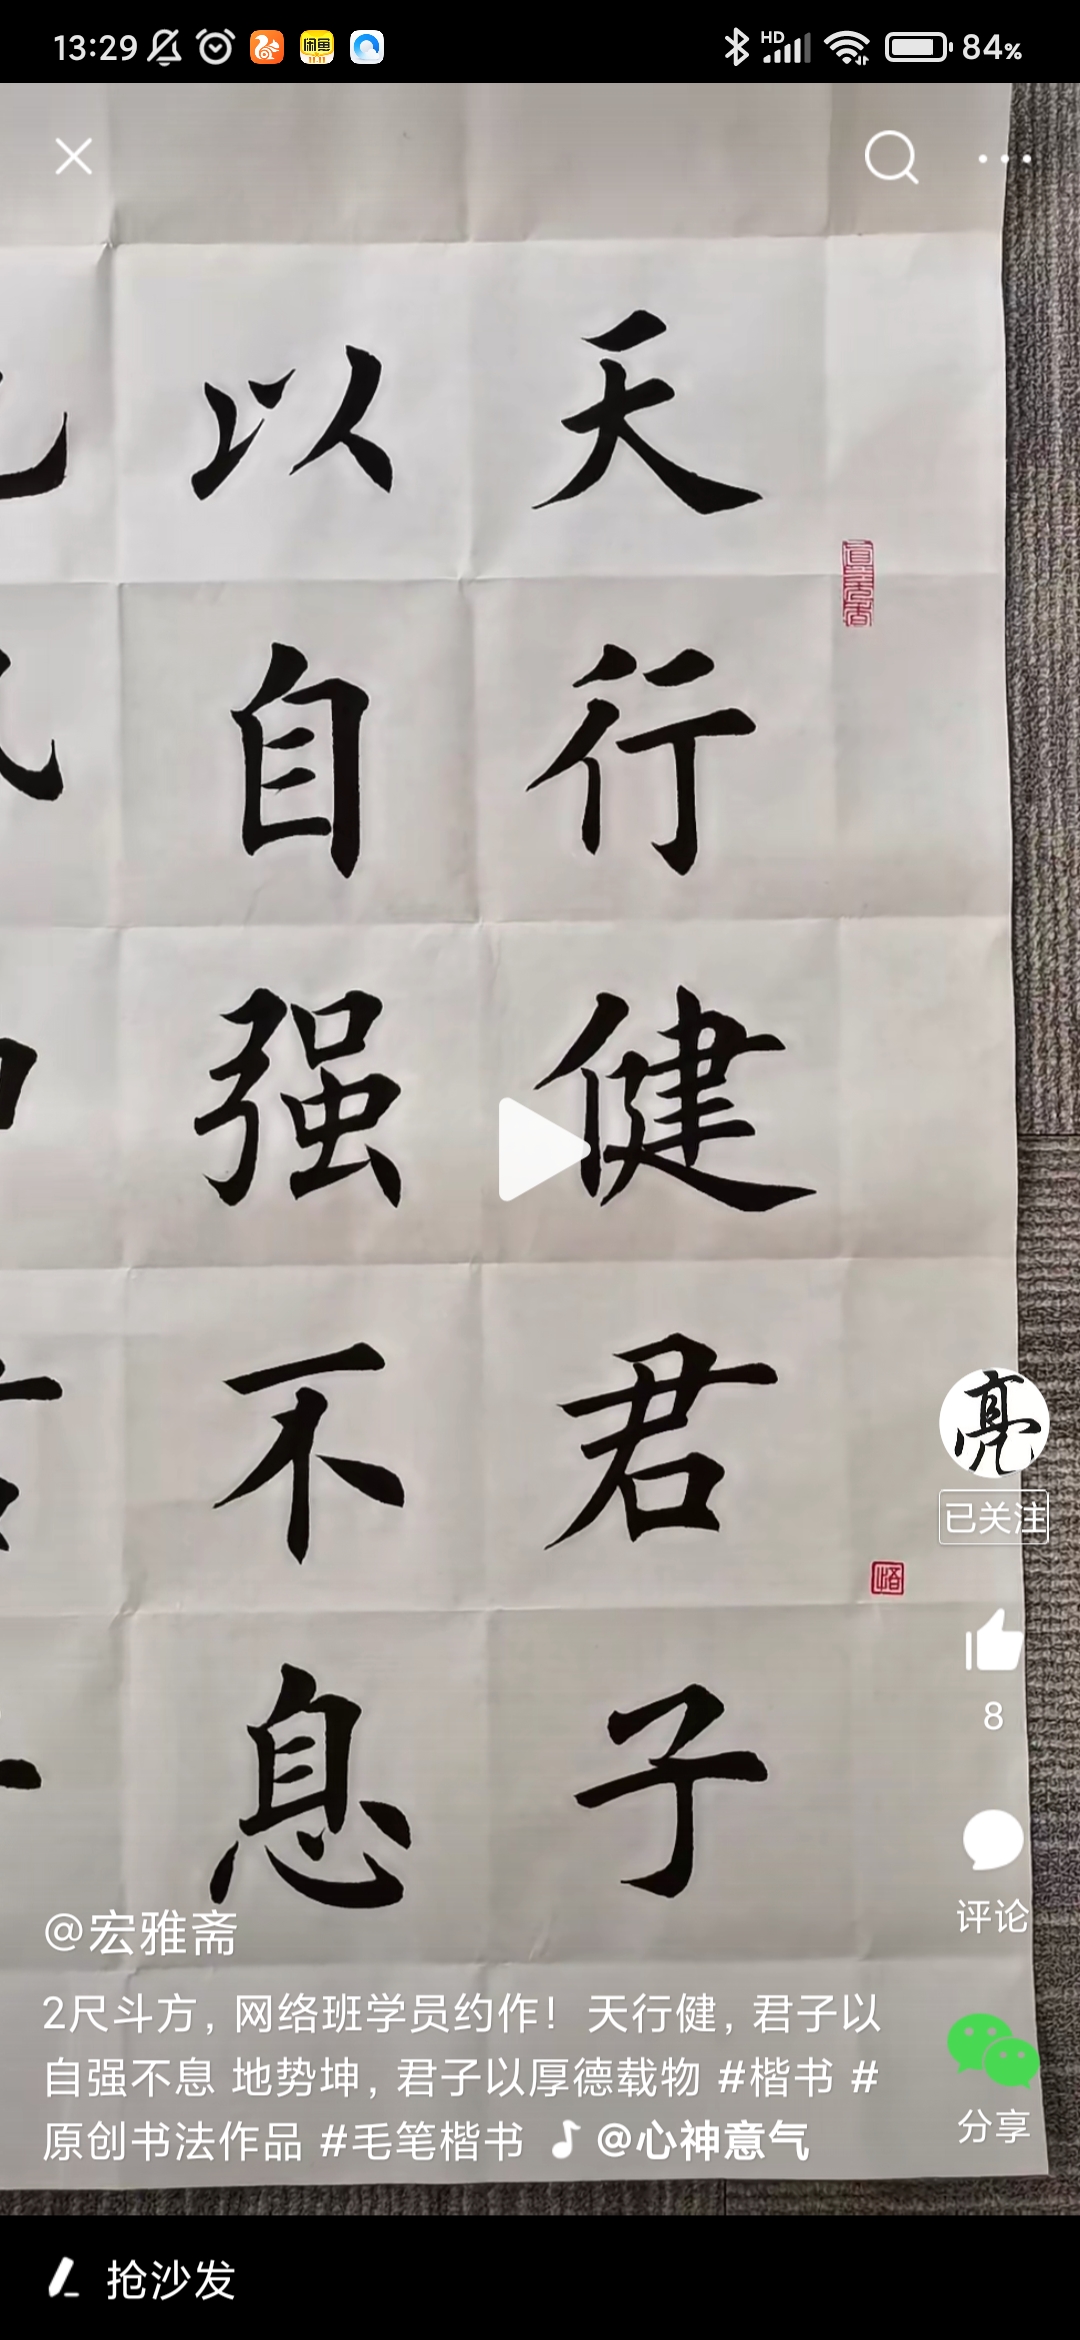 13:29
HD
84%
闲鱼
天行健君子
以自强不息
亮
已关注
8
评论
分享
@宏雅斋
2尺斗方, 网络班学员约作! 天行健, 君子以
自强不息 地势坤, 君子以厚德载物 #楷书 #
原创书法作品 #毛笔楷书 @心神意气
抢沙发